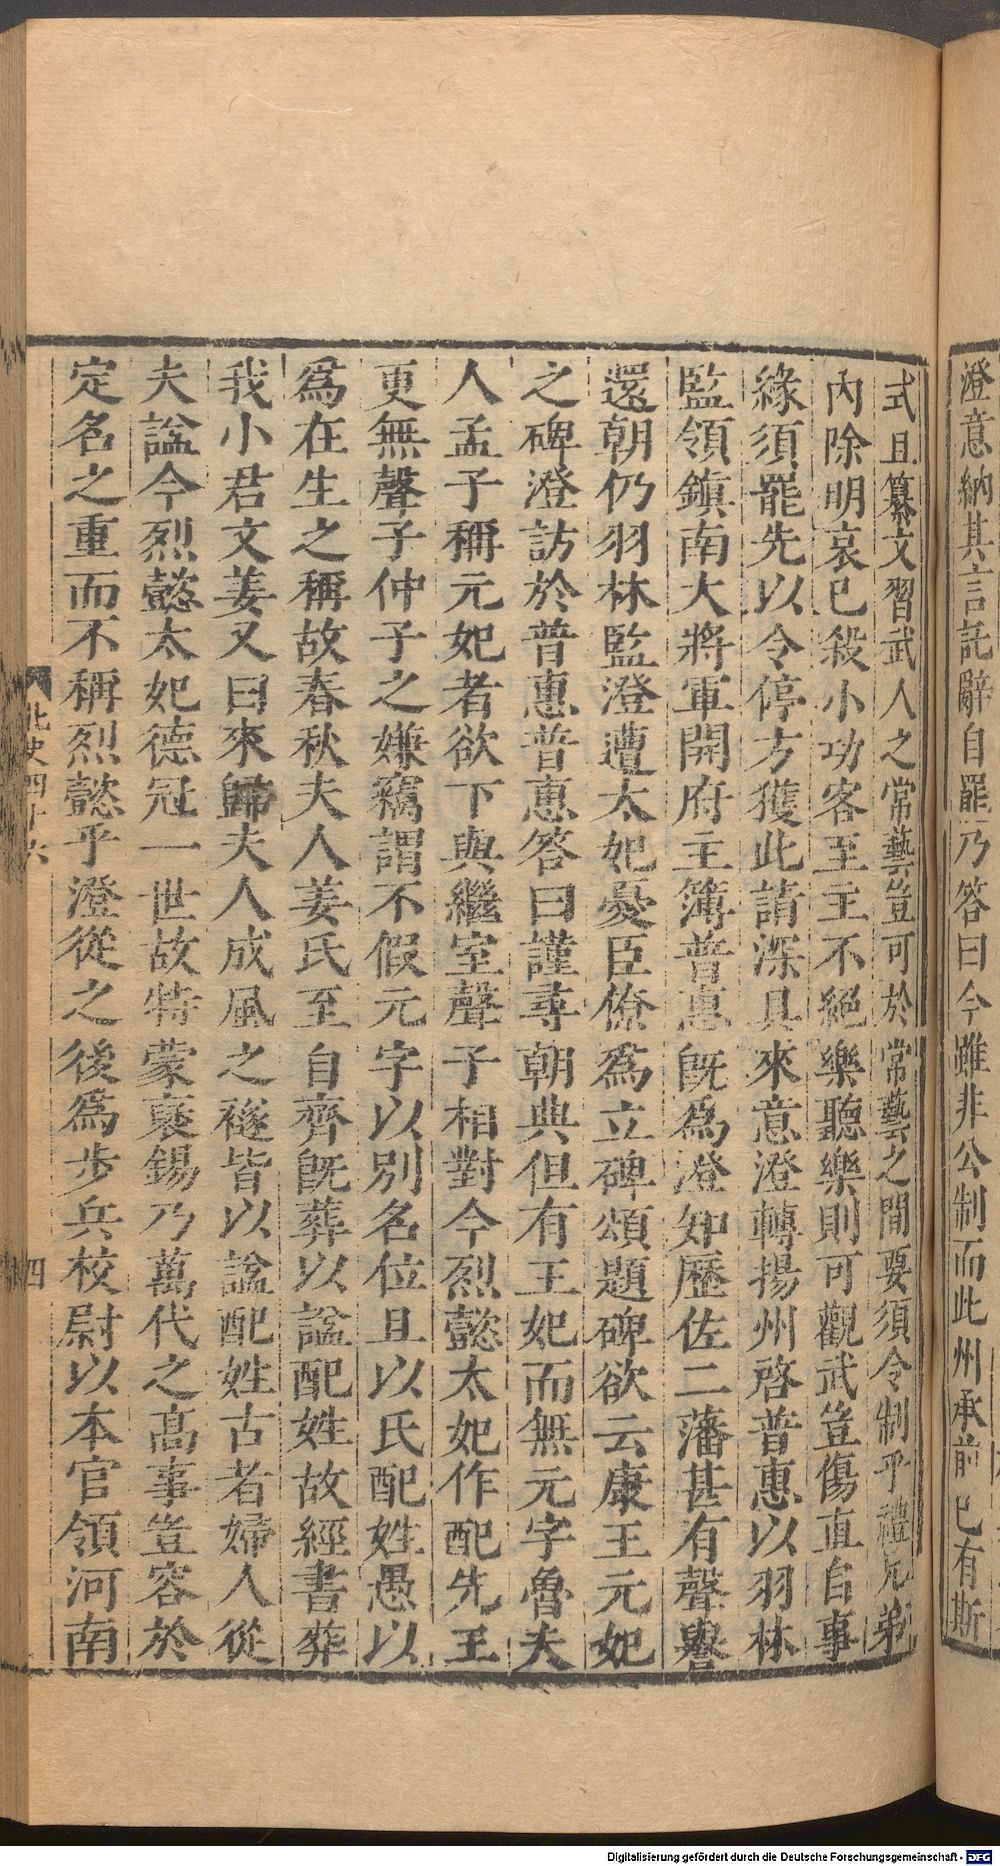 澄意納其言託辭自罷乃答曰今雖非公制而此州承前已有斯
式且纂文習武人之常藝豈可於常藝之間要須令制乎禮兄弟
內除明哀已殺小功客至主不絕樂聽樂則可觀武豈傷直自事
緣須罷先以令停方獲此請深具來意澄轉揚州啓普惠以羽林
監領鎮南大將軍開府主簿普惠旣爲澄知歷佐二藩甚有聲譽
還朝仍羽林監澄遭太妃憂臣僚爲立碑頌題碑欲云康王元妃
之碑澄訪於普惠普惠答曰謹尋朝典但有王妃而無元字魯夫
人孟子稱元妃者欲下與繼室聲子相對今烈懿太妃作配先王
更無聲子仲子之嫌竊謂不假元字以別名位且以氏配姓愚以
爲在生之稱故春秋夫人姜氏至自齊旣葬以諡配姓故經書葬
我小君文姜又曰來歸夫人成風之襚皆以諡配姓古者婦人從
夫諡今烈懿太妃德冠一世故特蒙襃錫乃萬代之高事豈容於
定名之重而不稱烈懿乎澄從之後爲步兵校尉以本官領河南
北史四十六
四
Digitalisierung gefördert durch die Deutsche Forschungsgemeinschaft - DFG